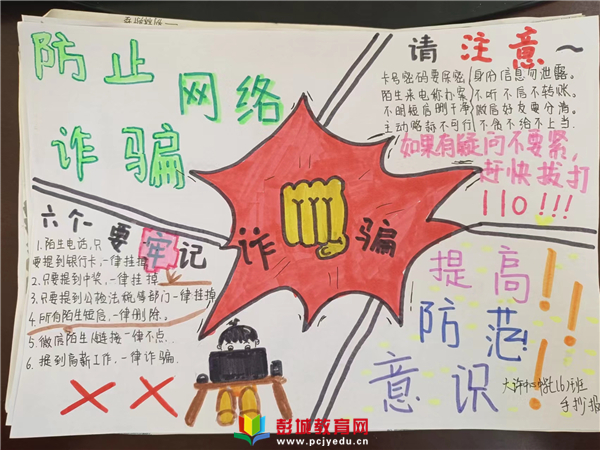 防止
网络
诈骗
请注意~
卡号密码要保密
陌生来电称办案
不明短信删干净
主动贿赂不可行
身份信息勿泄露。
不听不信不转账。
微信好友要分清。
不贪不给不上当
如果有疑问不要紧,
赶快拨打
110!!!
诈骗
六个一要牢记
1.陌生电话,只
要提到银行卡,一律挂掉
2.只要提到中奖,一律挂掉
3.只要提到公检法税务部门一律挂掉
4.所有陌生短信,一律删除。
5.微信陌生链接一律不点.
6.提到高薪工作,一律诈骗.
提高
防范
意识!!!
大许中心中学(6)班
手抄报
彭城教育网
www.pcjyedu.cn